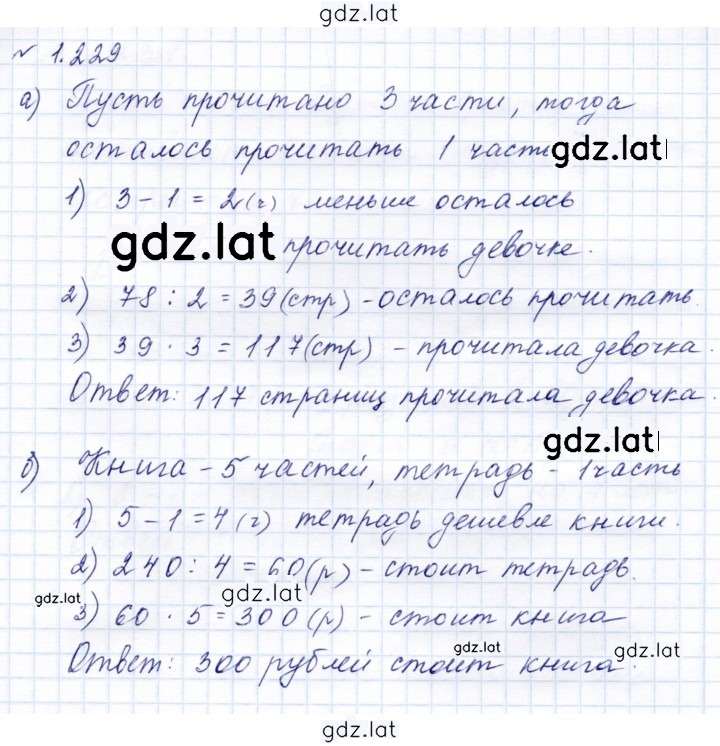 gdz.lat
№ 1.229
а) Пусть прочитано 3 части, тогда
осталось прочитать 1 часть gdz.lat
1) 3 - 1 = 2 (ч) меньше осталось
gdz.lat прочитать девочке.
2) 78 : 2 = 39 (стр) - осталось прочитать.
3) 39 · 3 = 117 (стр) - прочитала девочка.
Ответ: 117 страниц прочитала девочка.
gdz.lat
б) Книга - 5 частей, тетрадь - 1 часть
1) 5 - 1 = 4 (ч) тетрадь дешевле книги.
2) 240 : 4 = 60 (р) - стоит тетрадь.
gdz.lat gdz.lat
3) 60 · 5 = 300 (р) - стоит книга
gdz.lat gdz.lat
Ответ: 300 рублей стоит книга.
gdz.lat